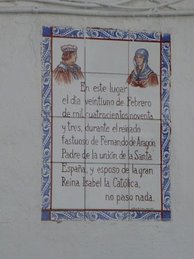 En este lugar
el día veintiuno de Febrero
de mil cuatrocientos noventa
y tres, durante el reinado
fastuoso de Fernando de Aragon
Padre de la unión de la Santa
España, y esposo de la gran
Reina Isabel la Católica,
no pasó nada.